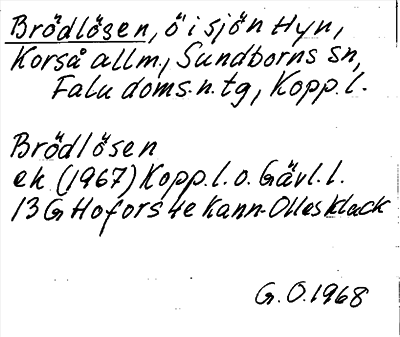 Brödlösen, ö i sjön Hyn,
Korså allm., Sundborns sn,
Falu doms.n.tg, Kopp.l.
Brödlösen
ek (1967) Kopp.l.o. Gävl.l.
13G Hofors 4e Kann-Olles klack
G.O.1968